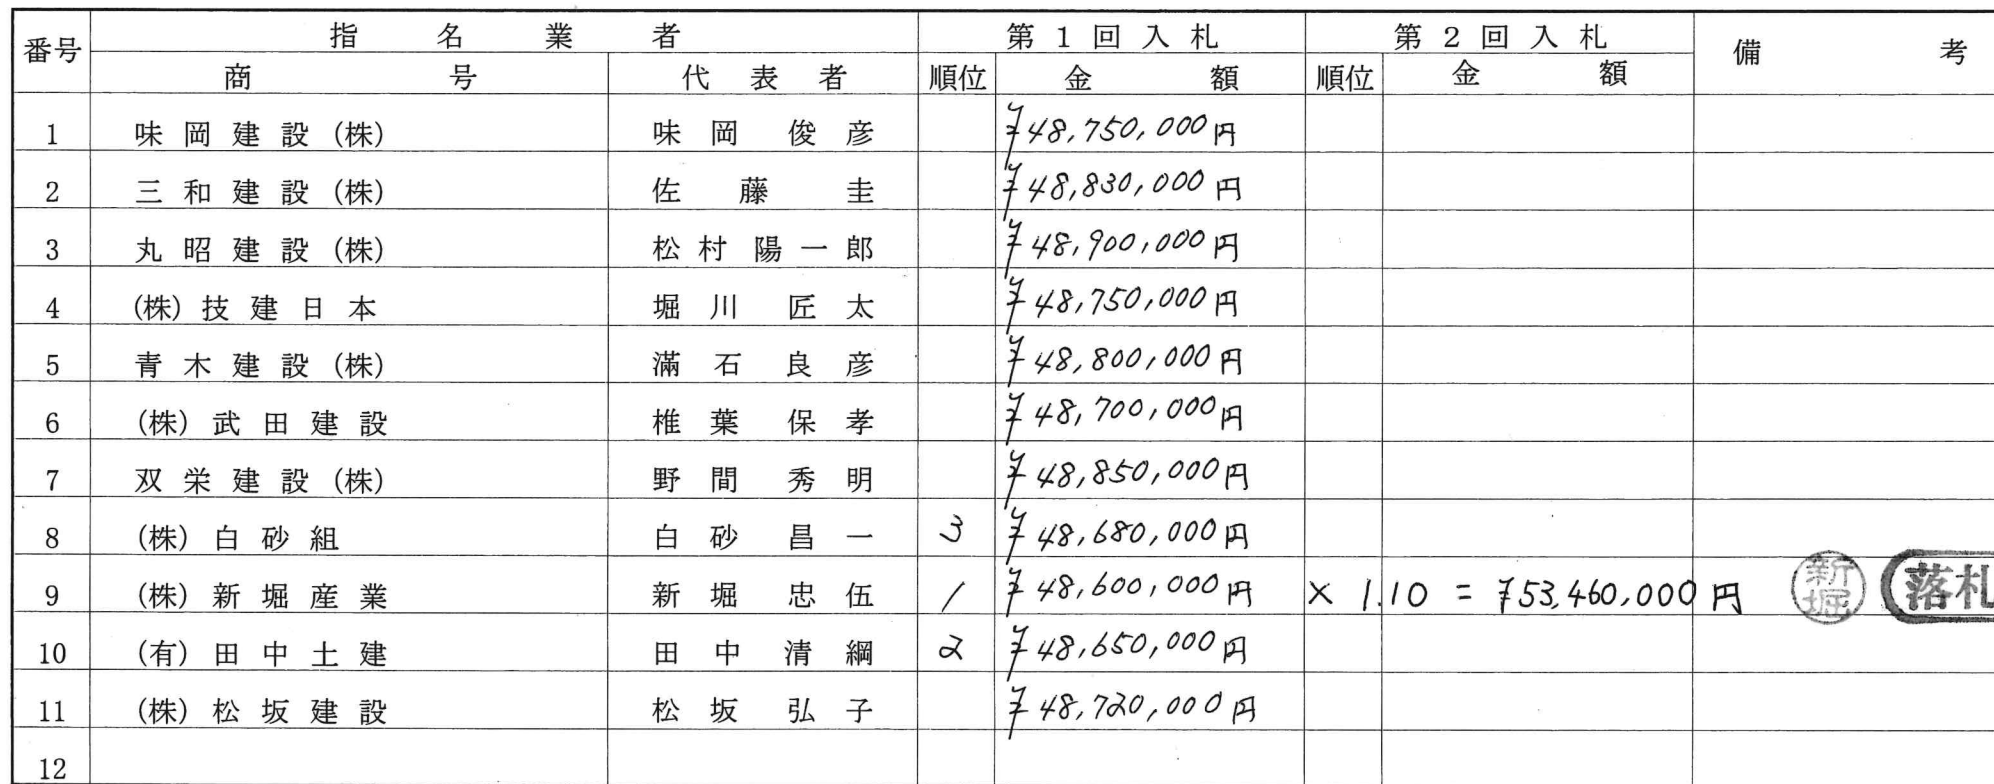 番号 指名業者 第1回入札 第2回入札 備考
商号 代表者 順位 金額 順位 金額
1 味岡建設(株) 味岡俊彦 ¥48,750,000円
2 三和建設(株) 佐藤圭 ¥48,830,000円
3 丸昭建設(株) 松村陽一郎 ¥48,900,000円
4 (株)技建日本 堀川匠太 ¥48,750,000円
5 青木建設(株) 滿石良彦 ¥48,800,000円
6 (株)武田建設 椎葉保孝 ¥48,700,000円
7 双栄建設(株) 野間秀明 ¥48,850,000円
8 (株)白砂組 白砂昌一 3 ¥48,680,000円
9 (株)新堀産業 新堀忠伍 1 ¥48,600,000円 × 1.10 = ¥53,460,000円 新堀 落札
10 (有)田中土建 田中清綱 2 ¥48,650,000円
11 (株)松坂建設 松坂弘子 ¥48,720,000円
12